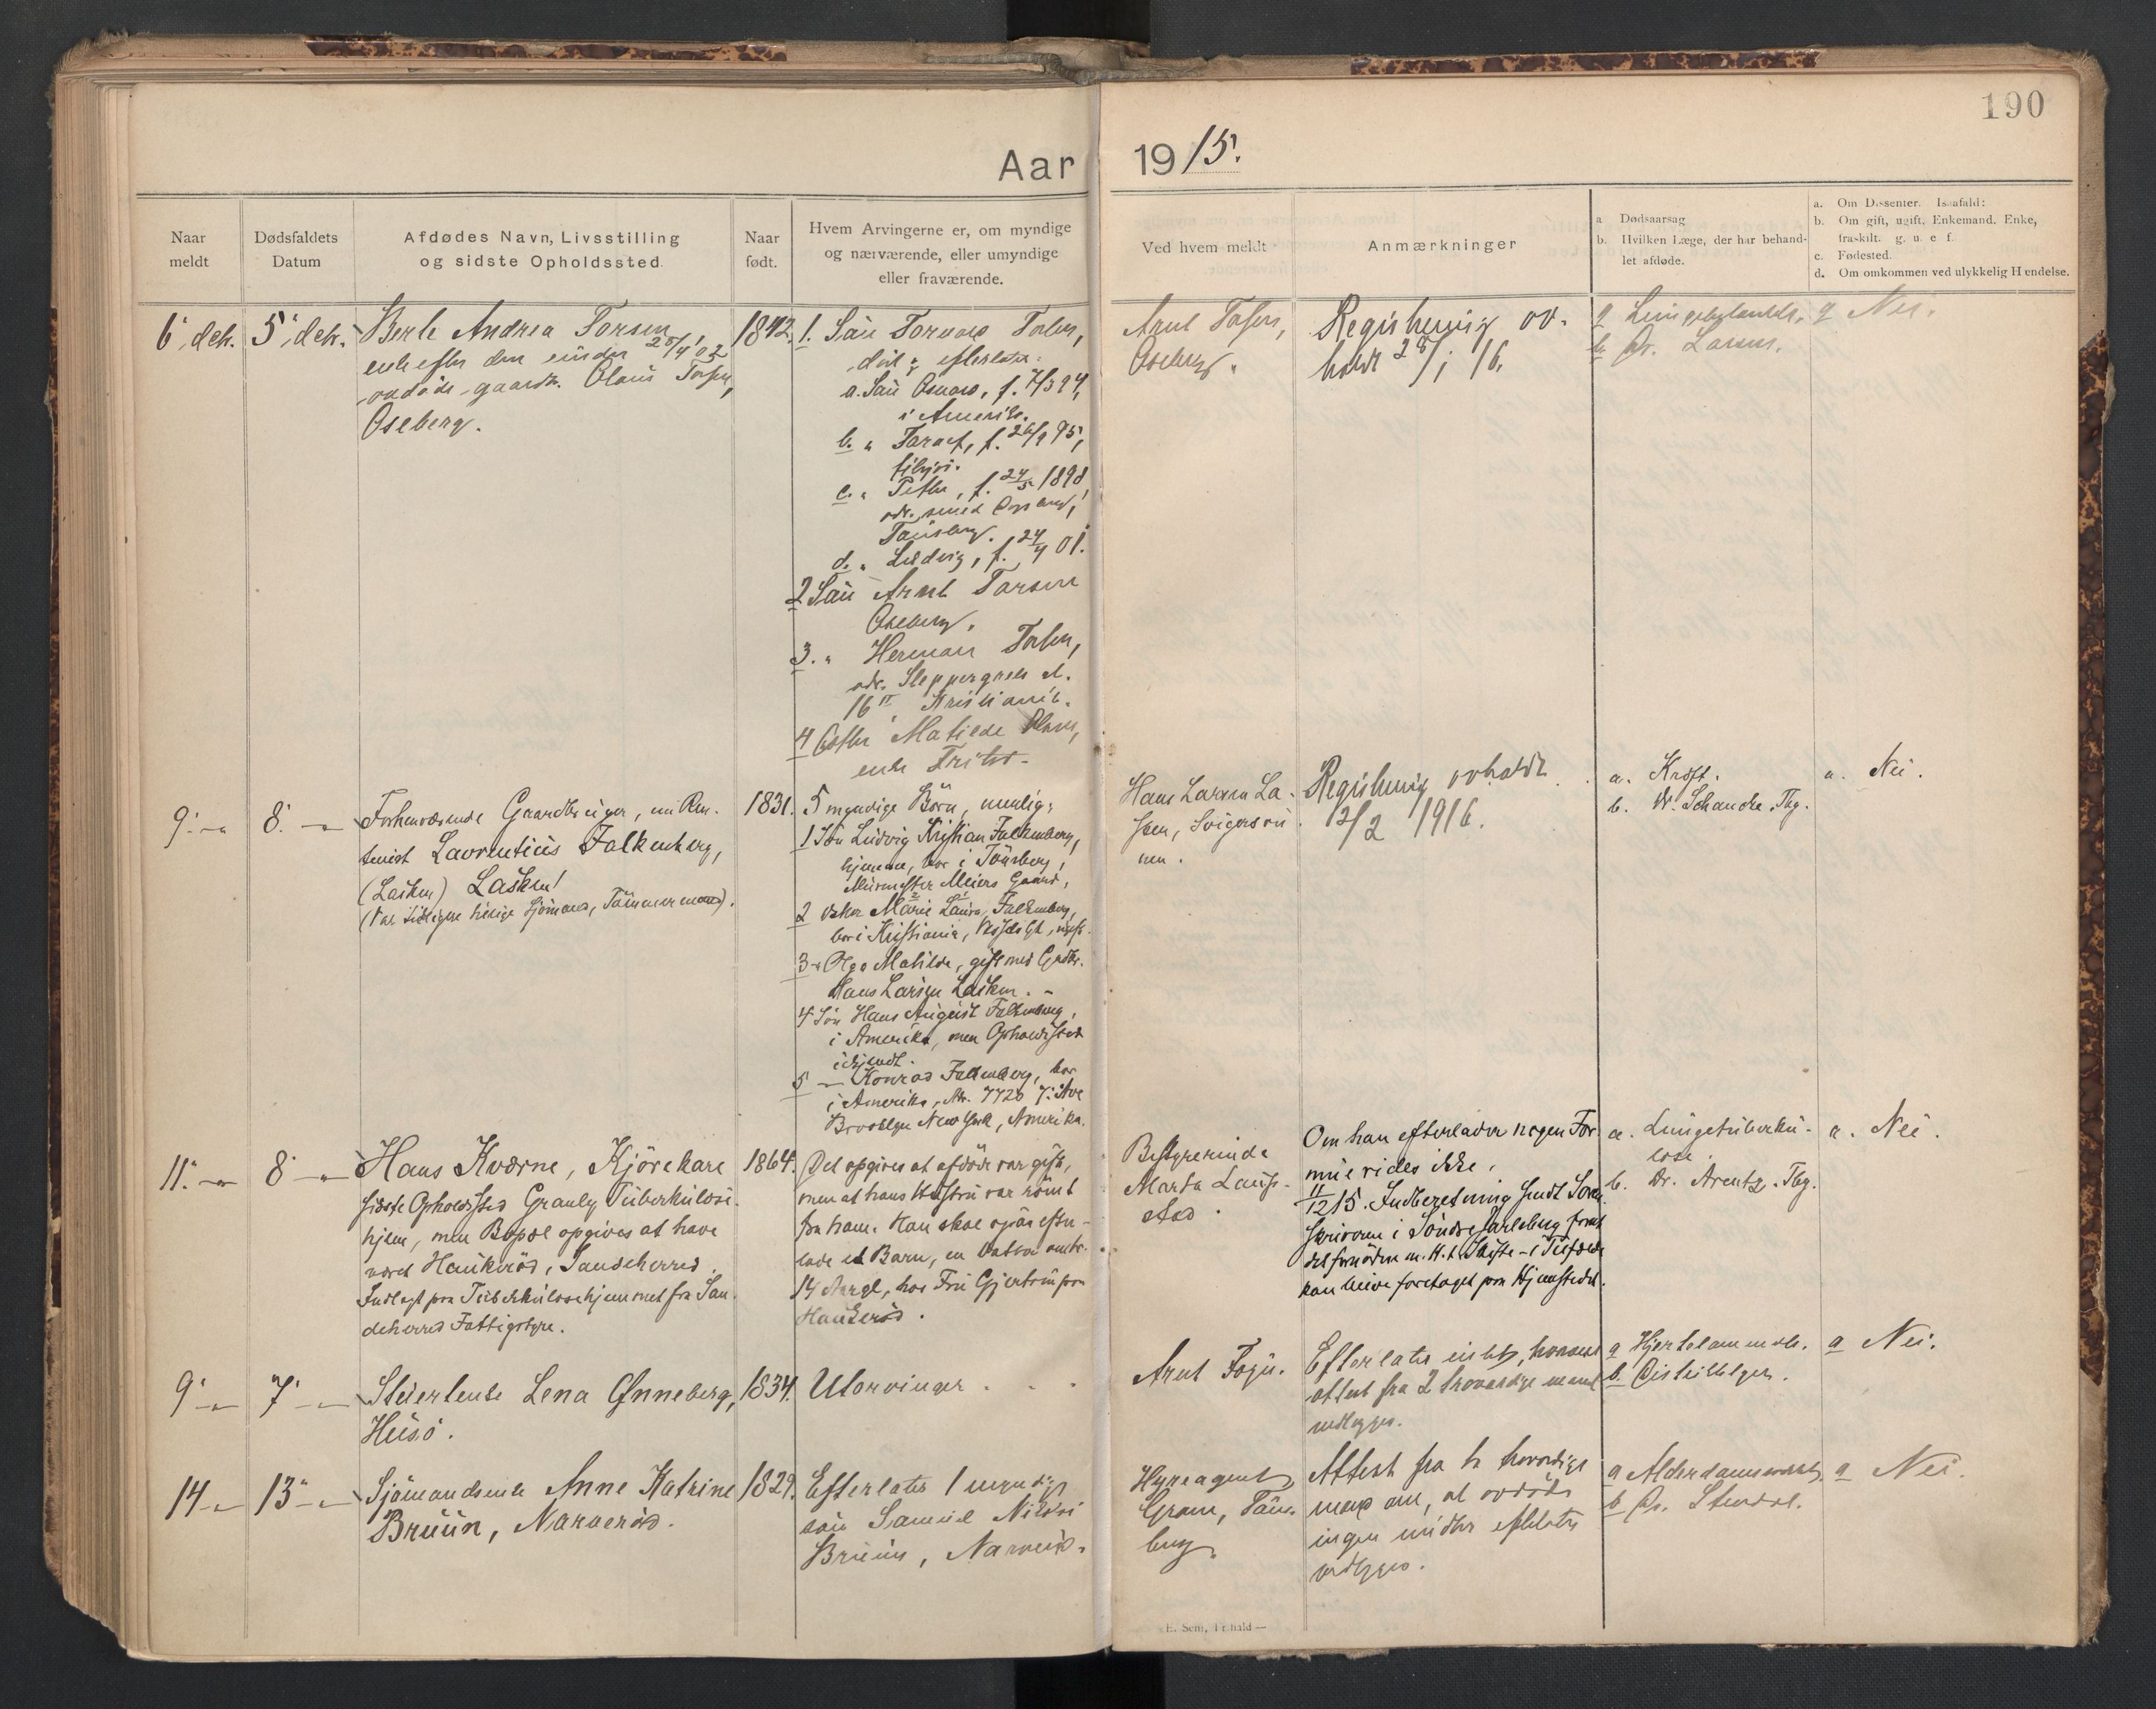 190
Aar 1915.
Naar meldt
Dødsfaldets Datum
Afdødes Navn, Livsstilling og sidste Opholdssted
Naar født.
Hvem Arvingerne er, om myndige og nærværende, eller umyndige eller fraværende.
Ved hvem meldt
Anmærkninger
a Dødsaarsag
b. Hvilken Læge, der har behandlet afdøde.
a. Om Dissenter. Isaafald:
b. Om gift, ugift, Enkemand, Enke, fraskilt. g. u. e f.
c. Fødested.
d. Om omkommen ved ulykkelig Hendelse.
6' dek. 5' dek.
Berte Andrea Torsen
enke efter den
gaardb. Olaus Torsen,
Oseberg.
1842.
1. Søn Torvald Torsen,
død
a. Søn Osvald, f.
i Amerika.
b. " Toralf, f. 26/9 95,
tilsjøs.
c. " Petter, f. 24/5 1898,
adr. smed
Tønsberg.
d. " Ludvig, f. 24/4 01.
2 Søn Arnt Torsen
Oseberg.
3. " Herman Torsen,
adr. Sleppegrells
16 Kristiania.
4 Datter Matilde Olsen,
enke
Arnt Torsen,
Oseberg.
Registrering av-
holdt 28/1 16.
a
b. Dr. Larsen.
a Nei.
9'-"- 8.-"-
Forhenværende Gaardbruger, nu Ren-
tenist Lavrentius Falkenberg,
(Lasken) Lasken!
(Var tidligere tillige Sjømand, Tømmermand).
1831.
5 myndige Børn, nemlig:
1 Søn Ludvig Kristian Falkenberg,
hjemme, bor i Tønsberg,
Murmester Meiers Gaard,
2 Datter Marie Laura Falkenberg,
bor i Kristiania,
3 " Olga Matilde, gift med Gadbr.
Hans Larsen Lasken. -
4 Søn Hans August Falkenberg,
i Amerika, men Opholdssted
ukjendt.
5 -"- Konrad Falkenberg, bor
i Amerika, Adr. 7720 7. Ave
Brooklyn New York, Amerika.
Hans Larsen La-
sken, Svigersøn
nen.
Registrering avholdt
12/2 1916.
a. Kræft.
b. Dr. Schancke, Tbg.
a. Nei.
11.-"- 8-"-
Hans Kværne, Kjørekare
sidste Opholdssted Granly Tuberkulose-
hjem, men Bopæl opgives at have
været Haukerød, Sandeherred.
Indlagt paa Tuberkulosehjemmet fra San-
deherred Fattigstyre.
1864.
Det opgives at afdøde var gift,
men at hans Hustru var rømt
fra ham. Han skal ogsaa efter-
lade et Barn, en Datter omtr.
14 Aar gl., hos Fru Gjertsen paa
Haukerød.
Bestyrerinde
Marta Laups-
stad.
Om han efterlader nogen For-
mue vides ikke.
11/12 15. Indberetning sendt Soren-
skriveren i Søndre Jarlsberg forat
det fornødne m. H. t. Skifte - i Tilfælde
kan blive foretaget paa Hjemstedet.
a. Lungetuberku-
lose.
b. Dr. Arentz. Tbg.
a. Nei.
9'-"- 7'-"-
LenaØnneberg,
Husø.
1834.
Utarvinger
Arnt Foyn.
Efterlater intet, hvorom
attest fra 2 troværdige mænd
vedlægges.
a Hjertelammelse.
b.
a Nei.
14-"- 13'-"-
Sjømandsenke Anne Katrine
Bruun, Narverød.
1829.
Efterlater 1 myndig
søn Samuel Nikolai
Bruun, Narverød.
Hyreagent
Gram, Tøns-
berg.
Attest fra to troværdige
mænd om, at avdøde
ingen midler efterlater
vedlægges.
a Alderdomssvakhet.
b Dr.
a Nei.
E. Sem, Fr.hald —